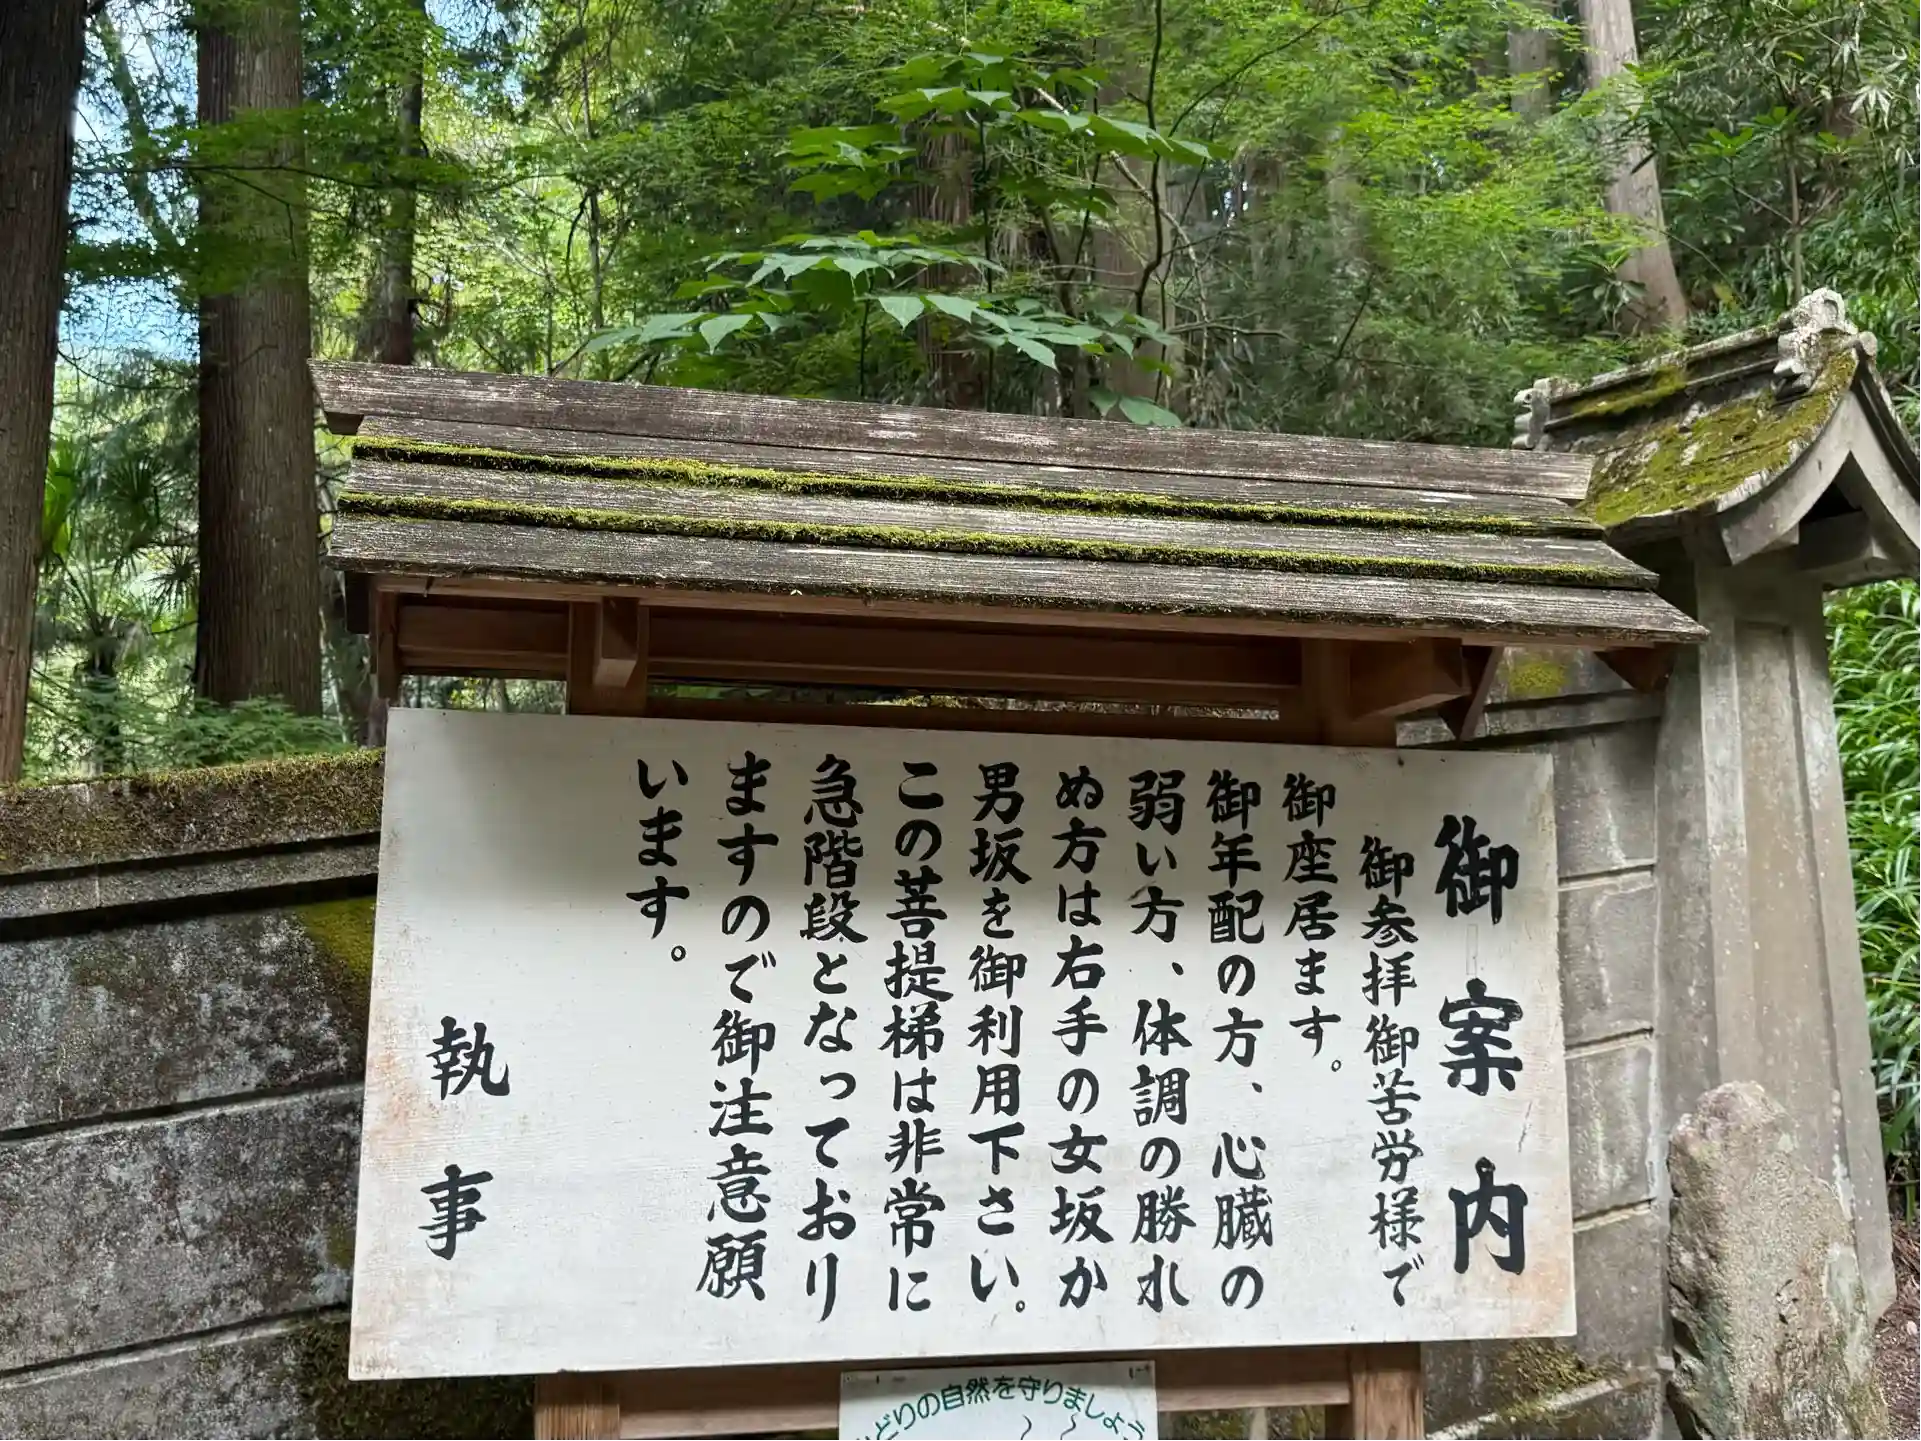 御案内
御参拝御苦労様で
御座居ます。
御年配の方、心臓の
弱い方、体調の勝れ
ぬ方は右手の女坂か
男坂を御利用下さい。
この菩提梯は非常に
急階段となっており
ますので御注意願
います。
執事
みどりの自然を守りましょう